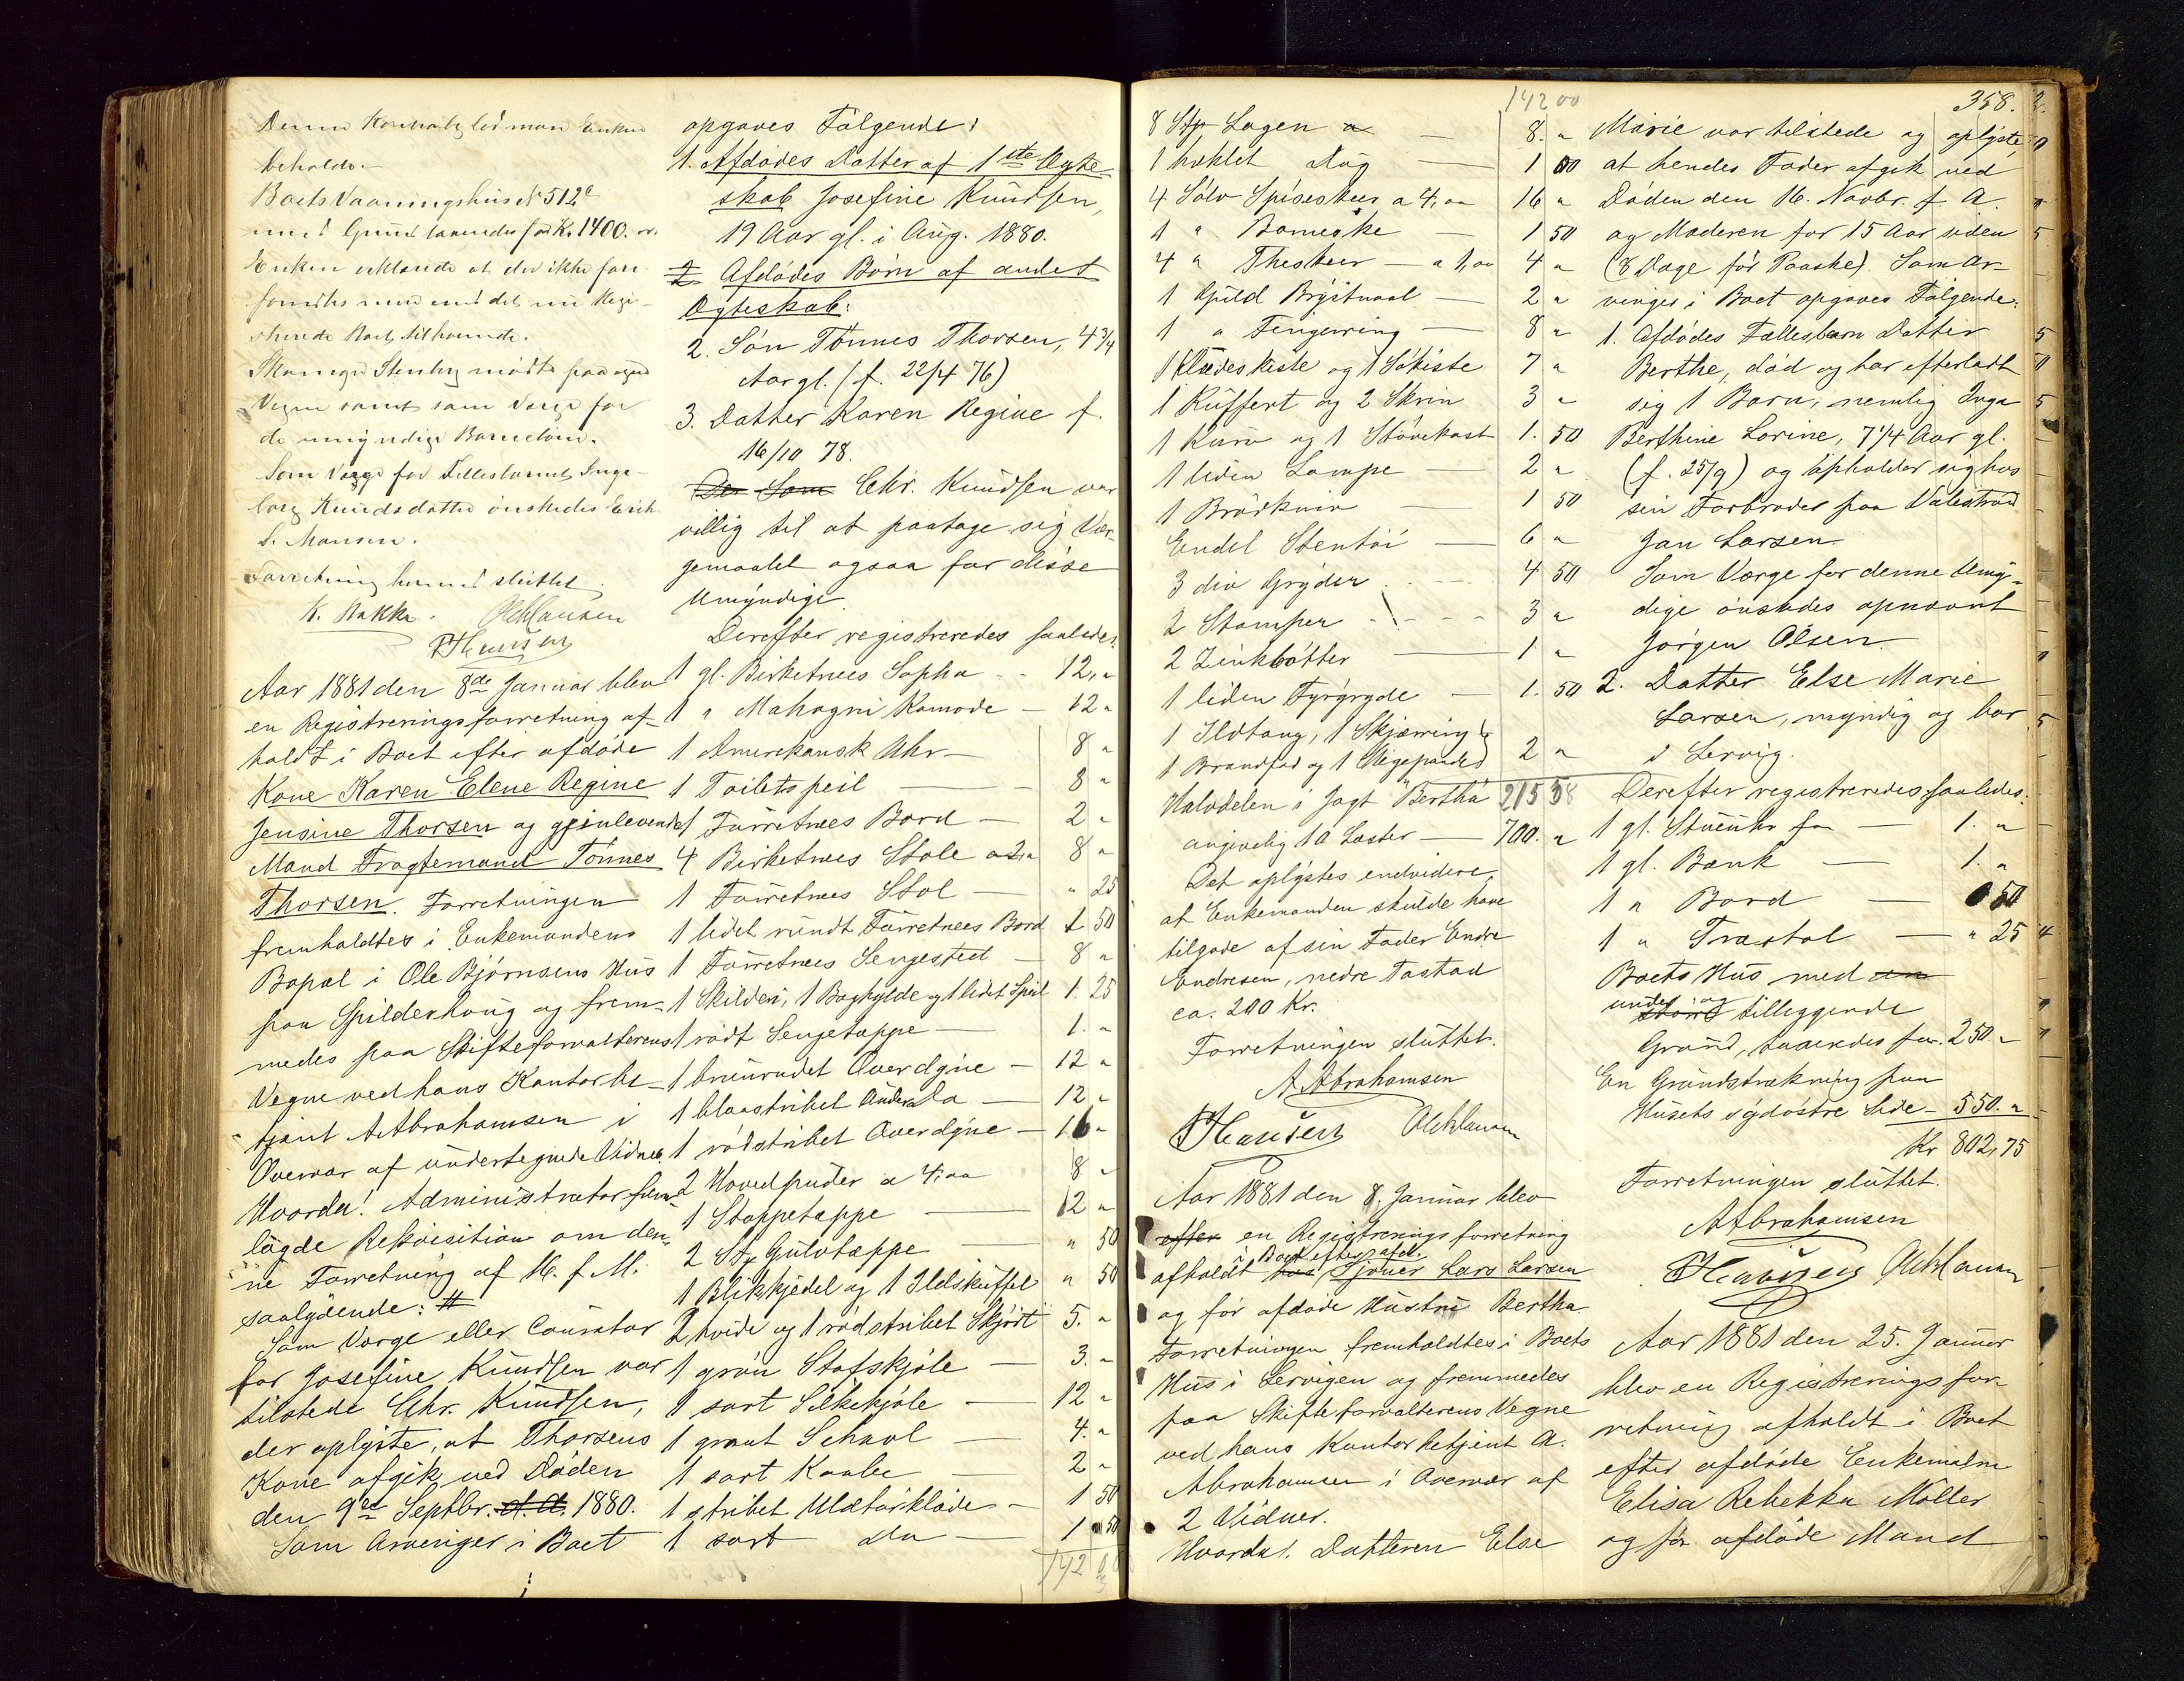 Denne Kontrakt lod man Enken
beholde.-
Boets Vaaningshus № 512c
med Grund taxeredes for Kr. 1400. -
Enken erklærede at der ikke fore-
fandtes mere end det nu Regi-
strerede Boet tilhørende.
mødte paa egne
Vegne samt som Værge for
de umyndige Børnebørn.
Som Værge for Fællesbarnet Inge-
borg Knudsdatter ønskedes Erik
S. Monsen.
Forretning hermed sluttet
K. Bakke. O Chr Clausen
P Hansen
Aar 1881 den 8de Januar blev
en Registreringsforretning af-
holdt i Boet efter afdøde
Kone Karen Elene Regine
Jensine Thorsen og gjenlevende
Mand Fragtemand Tønnes
Thorsen. Forretningen
fremholdtes i Enkemandens
Bopæl i Ole Bjørnsens Hus
paa Spilderhaug og frem-
medes paa Skifteforvalterens
Vegne ved hans Kontorbe-
tjent A. Abrahamsen i
Overvær af undertegnede Vidner.
Hvorda! Administrator frem-
lagde Rekvisition om den-
ne Forretning af H. f. M.
saalydende: #
Som Værge eller Courator
for Josefine Knudsen var
tilstede Chr. Knudsen,
der oplyste, at Thorsens
Kone afgik ved Døden
den 9de Septbr. d. A. 1880.
Som Arvinger i Boet
opgaves Følgende:
1. Afdødes Datter af 1ste Ægte-
skab Josefine Knudsen,
19 Aar gl. i Aug. 1880.
2 Afdødes Børn af andet
Ægteskab:
2. Søn Tønnes Thorsen, 4 3/4
Aar gl. (f. 22/4 76)
3. Datter Karen Regine f.
16/10 78.
Der Som Chr. Knudsen var
villig til at paatage sig Vær-
gemaalet ogsaa for disse
Umyndige.
Derefter registreredes saaledes:
1 gl. Birketræes Sopha - - 12, "
1 " Mahogni Komode - 12 "
1 Amerikansk Uhr - 8 "
1 Toiletspeil - 8 "
1 Furretræes Bord - 2 "
4 Birketræes Stole a 2," 8 "
1 Furretræes Stol - " 25
1 lidet rundt Furretræes Bord 1 50
1 Furretræes Sengested - 8 "
1 Skilderi, 1 Boghylde og 1 lidet Speil 1. 25
1 rødt Sengetæppe 1. "
1 brunrudet Overdyne - 12 "
1 blaastribet Under do - 12 "
1 rødstribet Overdyne - 16 "
2 Hovedpuder a 4,00 8 "
1 Stoppetæppe - 12 "
2 Stk Gulvtæppe - " 50
1 Blikkjedel og 1 Ildskuffel " 50
2 hvide og 1 rødstribet Skjørt 5. "
1 grøn Stofskjole - 3. "
1 sort Silkekjole - 12 "
1 graat Schavl - 4. "
1 sort Kaabe 2 "
1 stribet Uldtørklæde - 1 50
1 sort do - 1 50
142 00
142 00
358.
8 Stk Lagen a - 8. "
1 hæklet Dug - 1 00
4 Sølv Spiseskeer a 4,00 16 "
1 " Barneske - 1 50
4 " Theskeer - a 1,00 4 "
1 Guld Brystnaal - 2 "
1 " Fingerring - 8 "
1 Klædeskiste og 1 Søkiste 7 "
1 Kuffert og 2 Skrin 3 "
1 Kurv og 1 Støvekost 1. 50
1 liden Lampe - 2 "
1 Brødkniv - 1 50
Endel Stentøi - 6 "
3 div Gryder - - - 4 50
2 Stamper - - - 3 "
2 Zinkbøtter - 1 "
1 liden Fyrgryde - 1. 50
1 Ildtang, 1 Skjæring
1 Brandfad og 1 Stegepande 2 "
Halvdelen i Jagt "Bertha" 215 58
angivelig 10 Læster - 700. "
Det oplystes endvidere,
at Enkemanden skulde have
tilgode af sin Fader Endre
Endresen, nedre Tastad
ca. 200 Kr.
Forretningen sluttet.
A Abrahamsen
P Hansen O Chr Clausen
Aar 1881 den 8. Januar blev
efter en Registreringsforretning
i Boet efter afd.
afholdt hos Sjouer Lars Larsen
og før afdøde Hustru Bertha
Forretningen fremholdtes i Boets
Hus i Lervigen og fremmedes
paa Skifteforvalterens Vegne
ved hans Kontorbetjent A.
Abrahamsen i Overvær af
2 Vidner.
Hvorda!. Datteren Else
Marie var tilstede og oplyste,
at hendes Fader afgik ved
Døden den 16. Novbr. f. A.
og Moderen for 15 Aar siden
(8 Dage før Paaske). Som Ar-
vinger i Boet opgaves Følgende:
1. Afdødes Fællesbarn Datter
Berthe, død og har efterladt
sig 1 Barn, nemlig Inga
Berthine Lorine, 7 1/4 Aar gl.
(f. 25/9) og opholder sig hos
sin Farbroder paa Vålestrand
Jan Larsen
Som Værge for denne Umyn-
dige ønskedes opnævnt
Jørgen Olsen.
2. Datter Else Marie
Larsen, myndig og bor
i Lervig.
Derefter registreredes saaledes.
1 gl. Stueuhr for - 1. "
1 gl. Bænk - 1. "
1 " Bord - 50
1 " Træstol - " 25
Boets Hus med en
under og
større tilleggende
Grund, taxeredes for. 250. "
En Grundstrækning paa
Husets sydøstre Side - 550. "
Kr 802,75
Forretningen sluttet.
A Abrahamsen
P Hansen O Chr Clausen
Aar 1881 den 25. Januar
blev en Registreringsfor-
retning afholdt i Boet
efter afdøde Enkemadm
Elisa Rebekka Møller
og før afdøde Mand